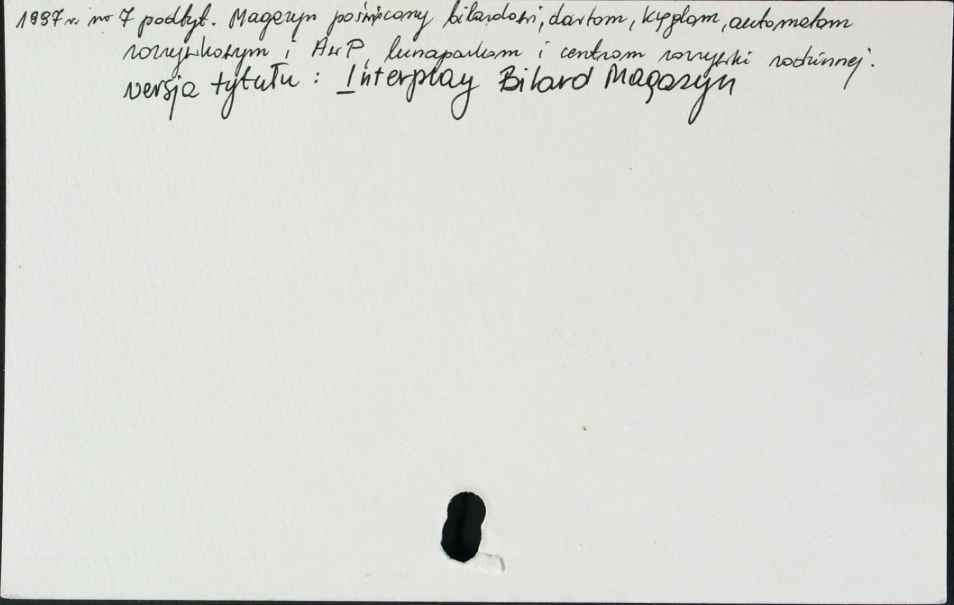 1997 r. nr 7 podtyt. Magazyn poświęcony bilardowi, dartom, kręglom, automatom
rozrywkowym i AWP, lunaparkom i centrom rozrywki rodzinnej.
wersja tytułu : Interplay Bilard Magazyn